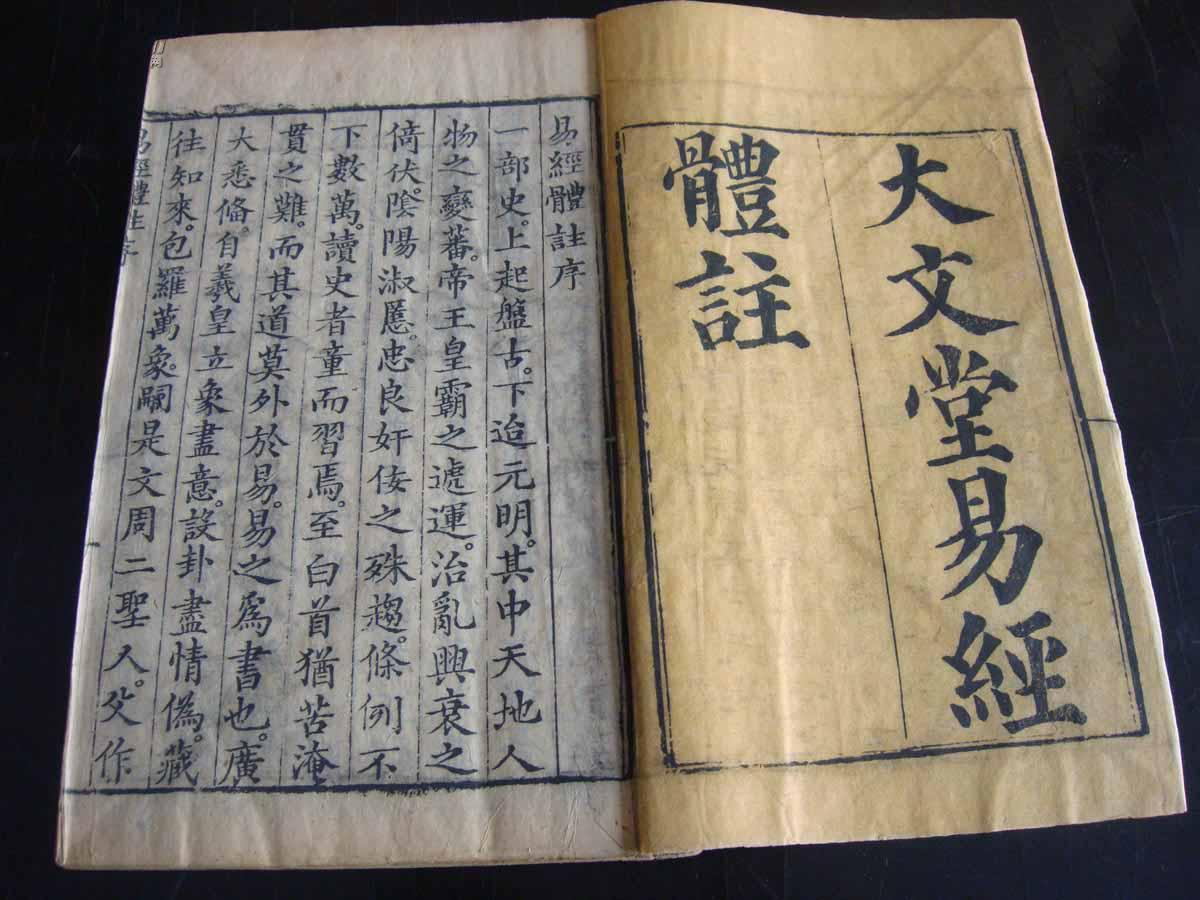 大文堂易經
體註
易經體註序
一部史。上起盤古。下迨元明。其中天地人
物之變蕃。帝王皇霸之遞運。治亂興衰之
倚伏。陰陽淑慝。忠良奸佞之殊趨。條例不
下數萬。讀史者童而習焉。至白首猶苦淹
貫之難。而其道莫外於易。易之爲書也。廣
大悉俻。自羲皇立象盡意。設卦盡情僞。藏
往知來。包羅萬象。嗣是文周二聖人。父作
易經體註序